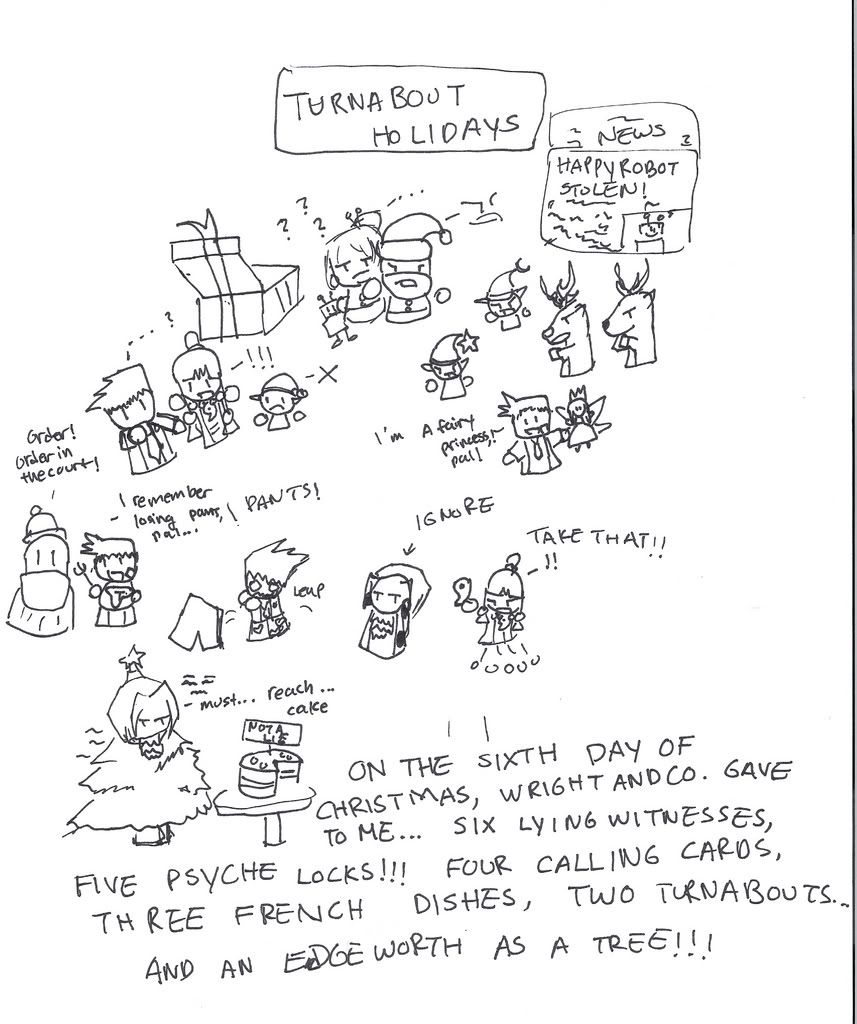 TURNABOUT
HOLIDAYS
NEWS
HAPPY ROBOT
STOLEN!
? ? ?
...
... ?
!!!
X
Order!
Order in
the court!
I'm A fairy
princess,
pal!
I remember
losing pants,
pal...
PANTS!
LEAP
IGNORE
TAKE THAT!!
!!
must... reach...
cake
NOT A
LIE
ON THE SIXTH DAY OF
CHRISTMAS, WRIGHT AND CO. GAVE
TO ME... SIX LYING WITNESSES,
FIVE PSYCHE LOCKS!!! FOUR CALLING CARDS,
THREE FRENCH DISHES, TWO TURNABOUTS...
AND AN EDGEWORTH AS A TREE!!!